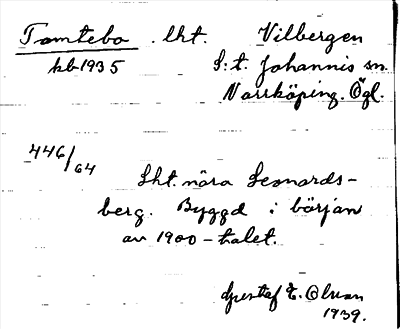 Tomtebo . lht. Vilbergen
hb 1935 S:t. Johannis sn.
Norrköping. Ögl.
446/64
Lht. nära Leonards-
berg. Byggd i början
av 1900-talet.
Gustaf E. Olsson
1939.